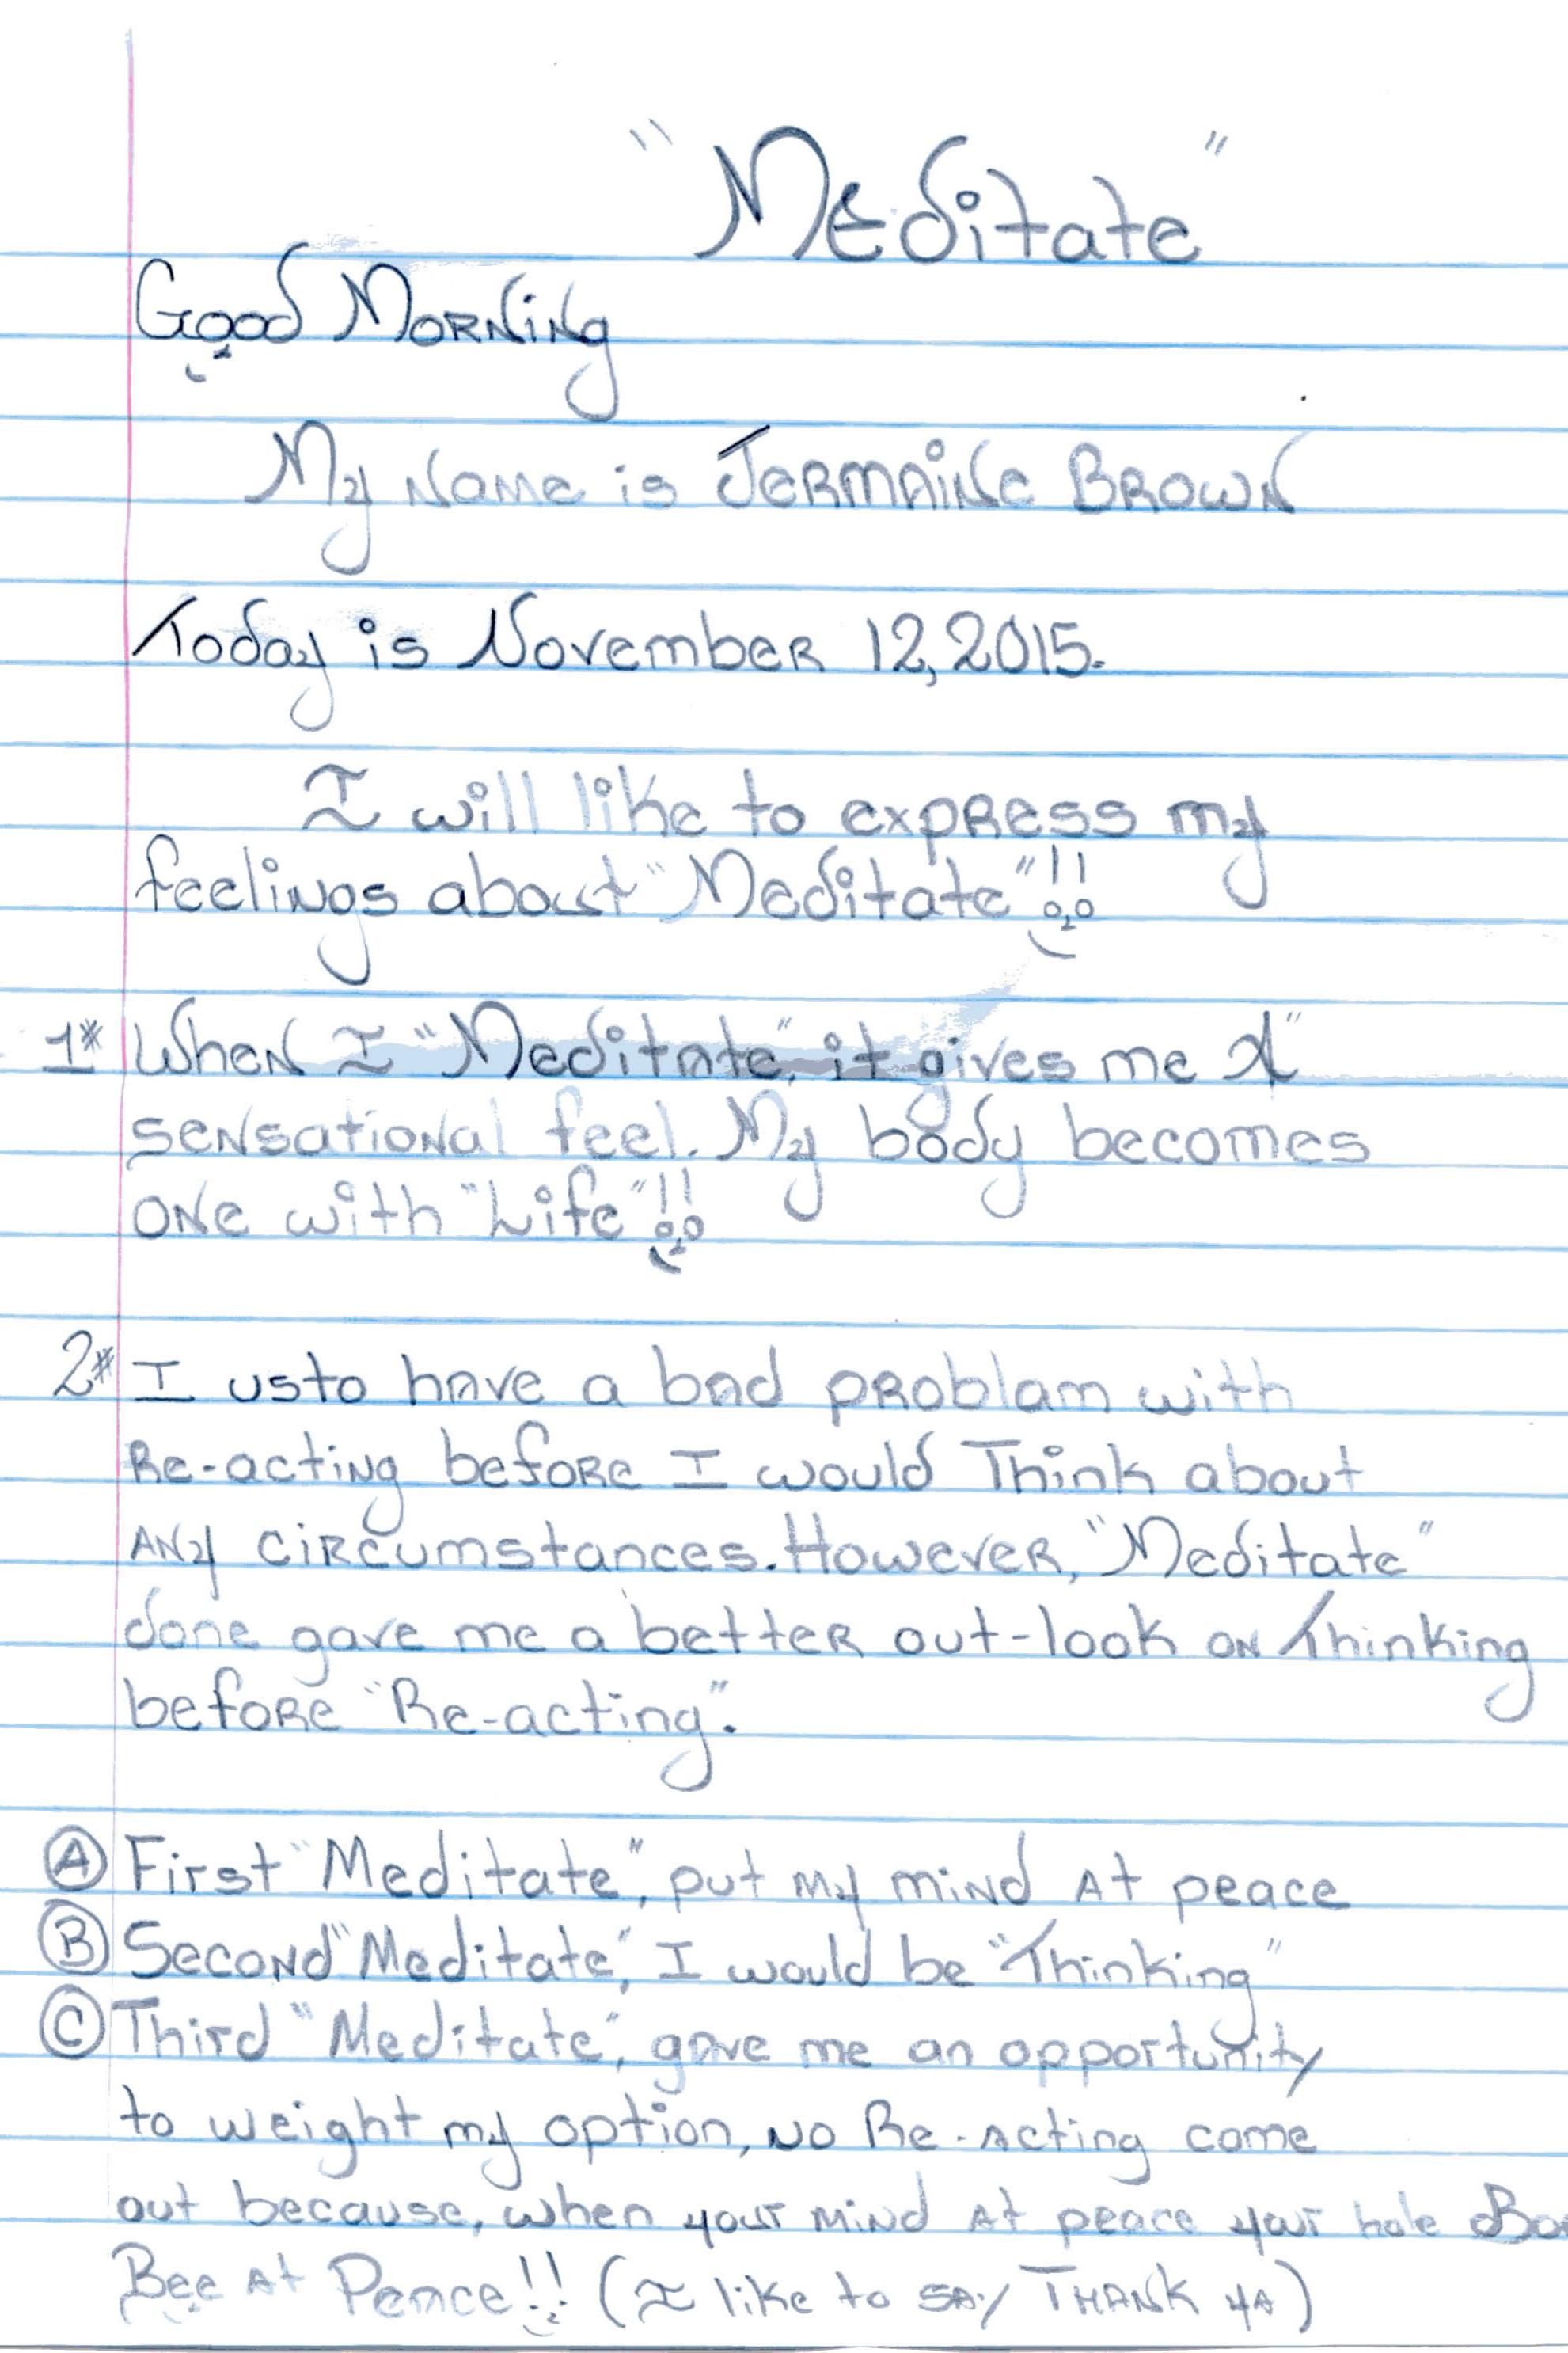 "Meditate"
Good Morning
My Name is Jermaine Brown
Today is November 12, 2015.
I will like to express my
feelings about "Meditate"!!
1* When I "Meditate", it gives me "A"
sensational feel. My body becomes
one with "Life"!!
2* I usto have a bad problam with
Re-acting before I would Think about
any circumstances. However, "Meditate"
done gave me a better out-look on Thinking
before "Re-acting".
A First "Meditate", put my mind at peace
B Second "Meditate", I would be "Thinking"
C Third "Meditate", gave me an opportunity
to weight my option, no Re-acting come
out because, when your mind at peace your hole
Bee at Peace!! (I like to say Thank ya)